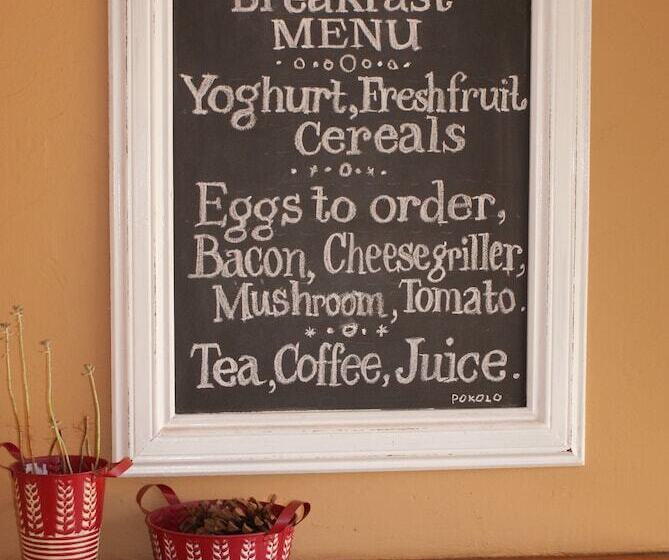 Breakfast
MENU
Yoghurt, Freshfruit
Cereals
Eggs to order,
Bacon, Cheesegriller,
Mushroom, Tomato.
Tea, Coffee, Juice.
POKOLO